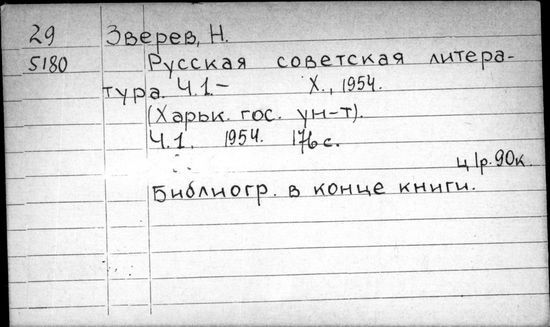 29 Зверев, Н.
5180 Русская советская литера-
тура. Ч.1- Х., 1954.
(Харьк. гос. ун-т).
Ч.1. 1954. 176 с.
ц 1р. 90к.
Библиогр. в конце книги.